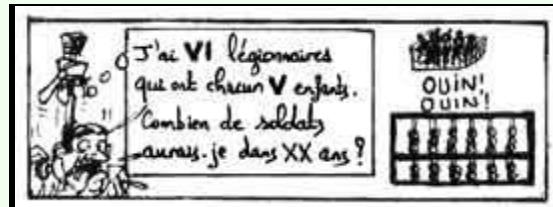 J'ai VI légionnaires
qui ont chacun V enfants.
Combien de soldats
aurais-je dans XX ans ?
OUIN!
OUIN!